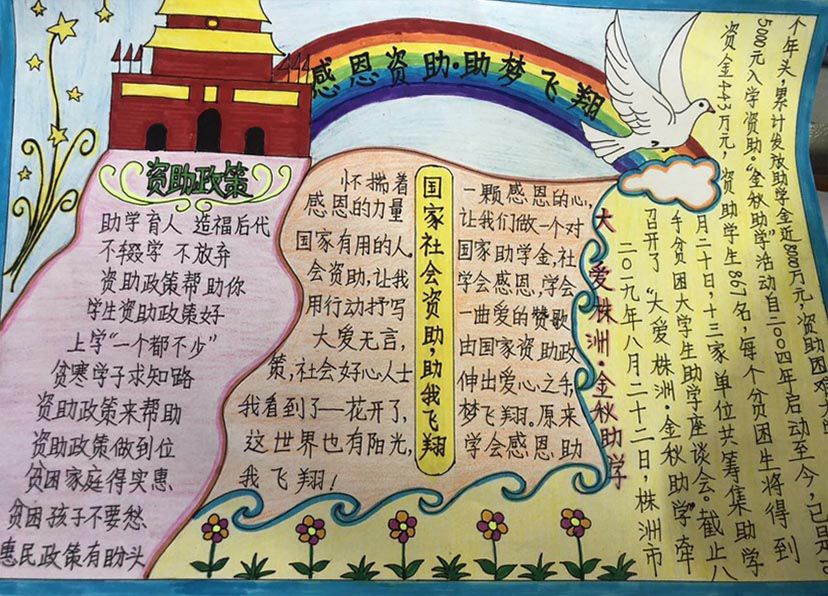 感恩资助·助梦飞翔
资助政策
助学育人 造福后代
不辍学 不放弃
资助政策帮助你
学生资助政策好
上学“一个都不少”
贫寒学子求知路
资助政策来帮助
资助政策做到位
贫困家庭得实惠
贫困孩子不要愁
惠民政策有盼头
国家社会资助,助我飞翔
怀揣着 一颗感恩的心,
感恩的力量 让我们做一个对
国家有用的人。 国家助学金,社
会资助,让我 学会感恩,学会
用行动抒写 一曲爱的赞歌
大爱无言, 由国家资助政
策,社会好心人士 伸出爱心之手,
我看到了一花开了, 梦飞翔。原来
这世界也有阳光, 学会感恩 助
我飞翔!
大爱株洲·金秋助学
二〇一九年八月二十二日,株洲市
召开了“大爱株洲·金秋助学”牵
手贫困大学生助学座谈会。截止八
月二十日,十三家单位共筹集助学
资金443万元,资助学生867名,每个贫困生将得到
5000元入学资助。“金秋助学”活动自二〇〇四年启动至今,已是
个年头,累计发放助学金近800万元,资助困难大